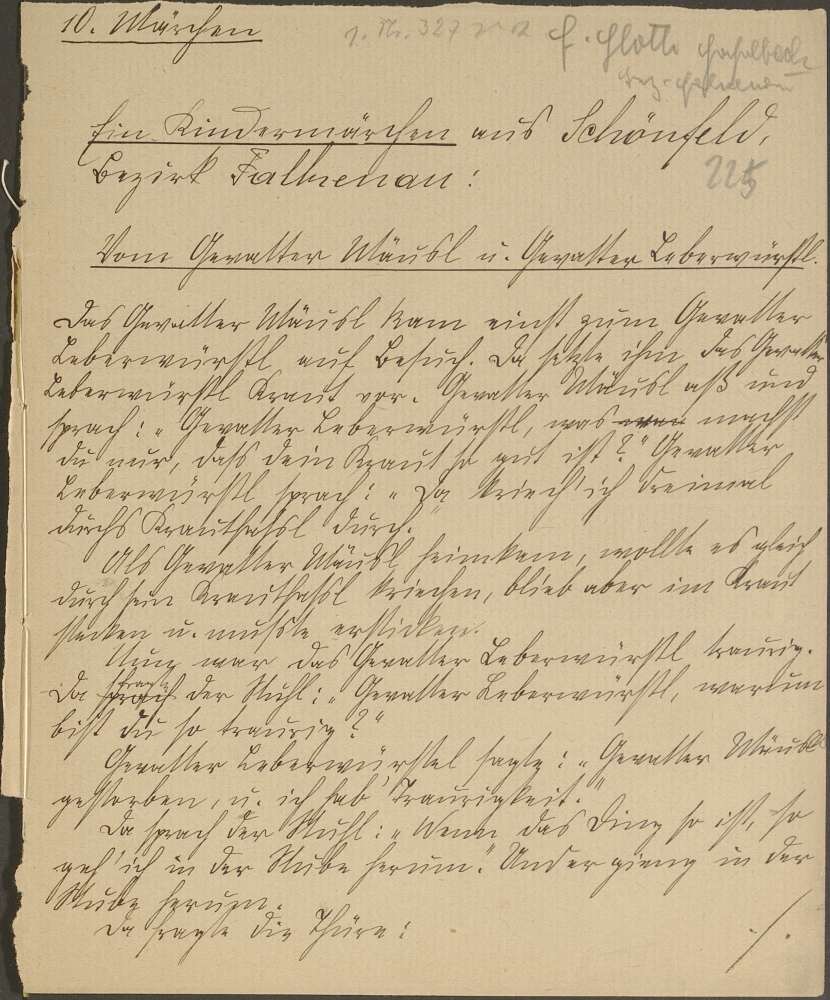 10. Märchen
J. Nr. 327
Ein Kindermärchen aus Schönfeld,
Bezirk Falkenau:
225
Vom Gevatter Mäusl u. Gevatter Leberwürstl.
Das Gevatter Mäusl kam einst zum Gevatter
Leberwürstl auf Besuch. Da setzte ihm das Gevatter
Leberwürstl Kraut vor. Gevatter Mäusl aß und
sprach: „Gevatter Leberwürstl, was machst
du nur, dass dein Kraut so gut ist?" Gevatter
Leberwürstl sprach: „Da kriech' ich dreimal
durchs Krautfassl durch."
Als Gevatter Mäusl heimkam, wollte es gleich
durch sein Krautfassl kriechen, blieb aber im Kraut
stecken u. musste ersticken.
Nun war das Gevatter Leberwürstl traurig.
Da fragte der Stuhl: „Gevatter Leberwürstl, warum
bist du so traurig?"
Gevatter Leberwürstel sagte: „Gevatter Mäusl
gestorben, u. ich hab' Traurigkeit."
Da sprach der Stuhl: „Wenn das Ding so ist, so
geh' ich in der Stube herum." Und er gieng in der
Stube herum.
Da fragte die Thüre:
./.